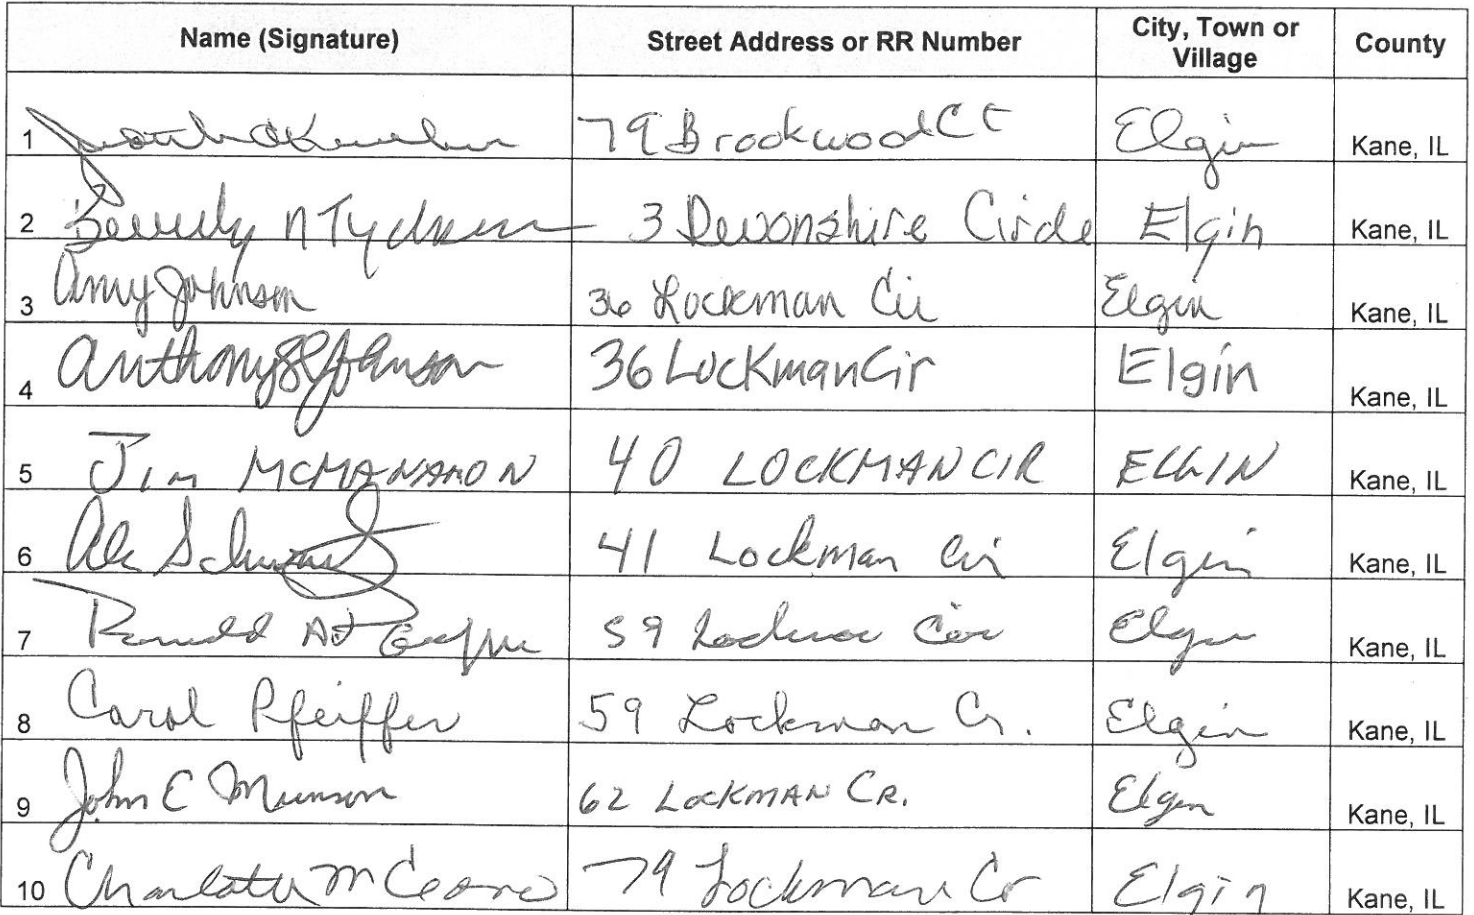 Name (Signature) Street Address or RR Number City, Town or Village County
1 79 Brookwood Ct Elgin Kane, IL
2 Beverly n 3 Devonshire Circle Elgin Kane, IL
3 Amy Johnson 36 Lockman Cir Elgin Kane, IL
4 Anthony Johnson 36 Lockman Cir Elgin Kane, IL
5 Jim McMANAMON 40 LOCKMAN CIR ELGIN Kane, IL
6 41 Lockman Cir Elgin Kane, IL
7 Ronald 59 Lockman Cir Elgin Kane, IL
8 Carol Pfeiffer 59 Lockman Cr. Elgin Kane, IL
9 John E Munson 62 LOCKMAN CR. Elgin Kane, IL
10 79 Lockman Cr Elgin Kane, IL